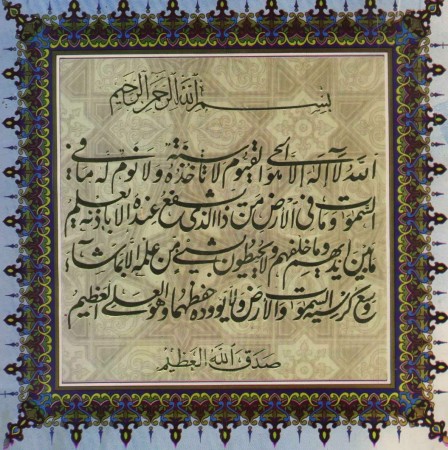 بسم الله الرحمن الرحيم
الله لا اله الا هو الحي القيوم لا تاخذه سنة ولا نوم له ما في
السموات وما في الارض من ذا الذي يشفع عنده الا باذنه يعلم
ما بين ايديهم وما خلفهم ولا يحيطون بشيء من علمه الا بما شآء
وسع كرسيه السموات والارض ولا يوده حفظهما وهو العلي العظيم
صدق الله العظيم